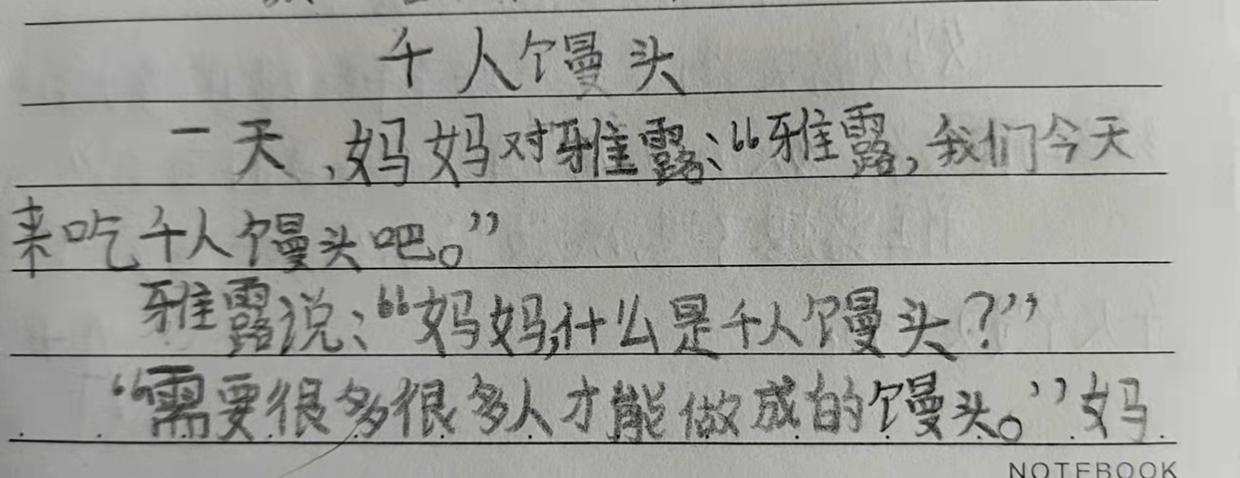 千人馒头
一天,妈妈对雅露:“雅露,我们今天
来吃千人馒头吧。”
雅露说:“妈妈,什么是千人馒头?”
“需要很多很多人才能做成的馒头。”妈
NOTEBOOK